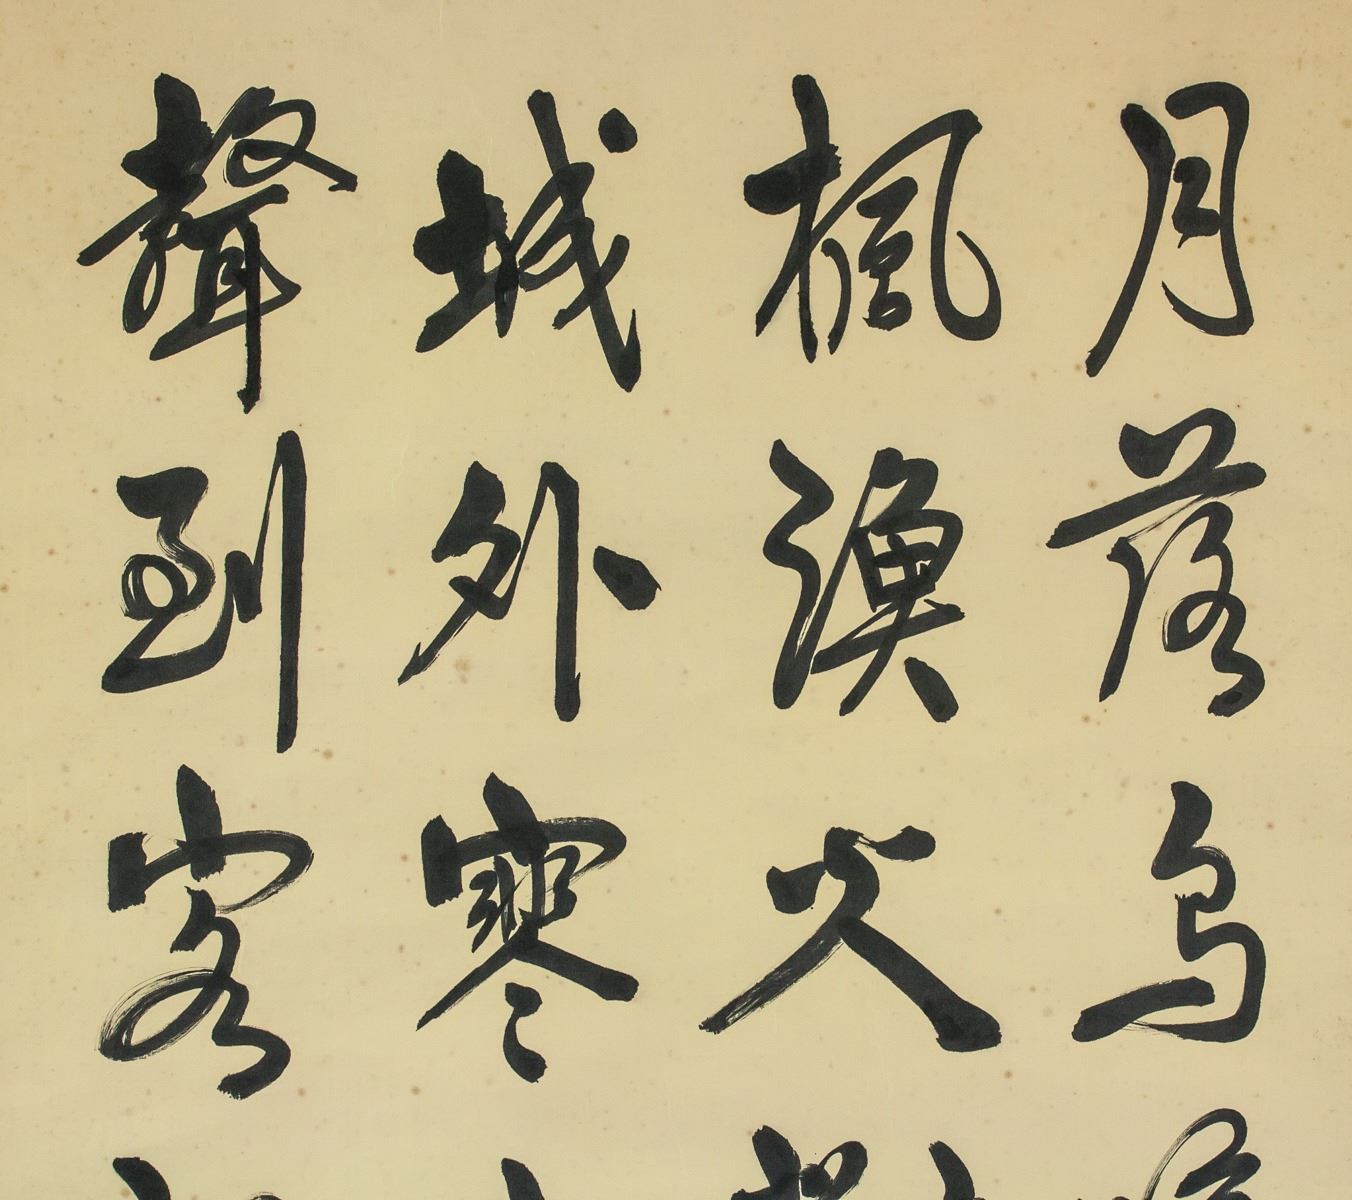 月落烏
楓漁火
城外寒
聲到客